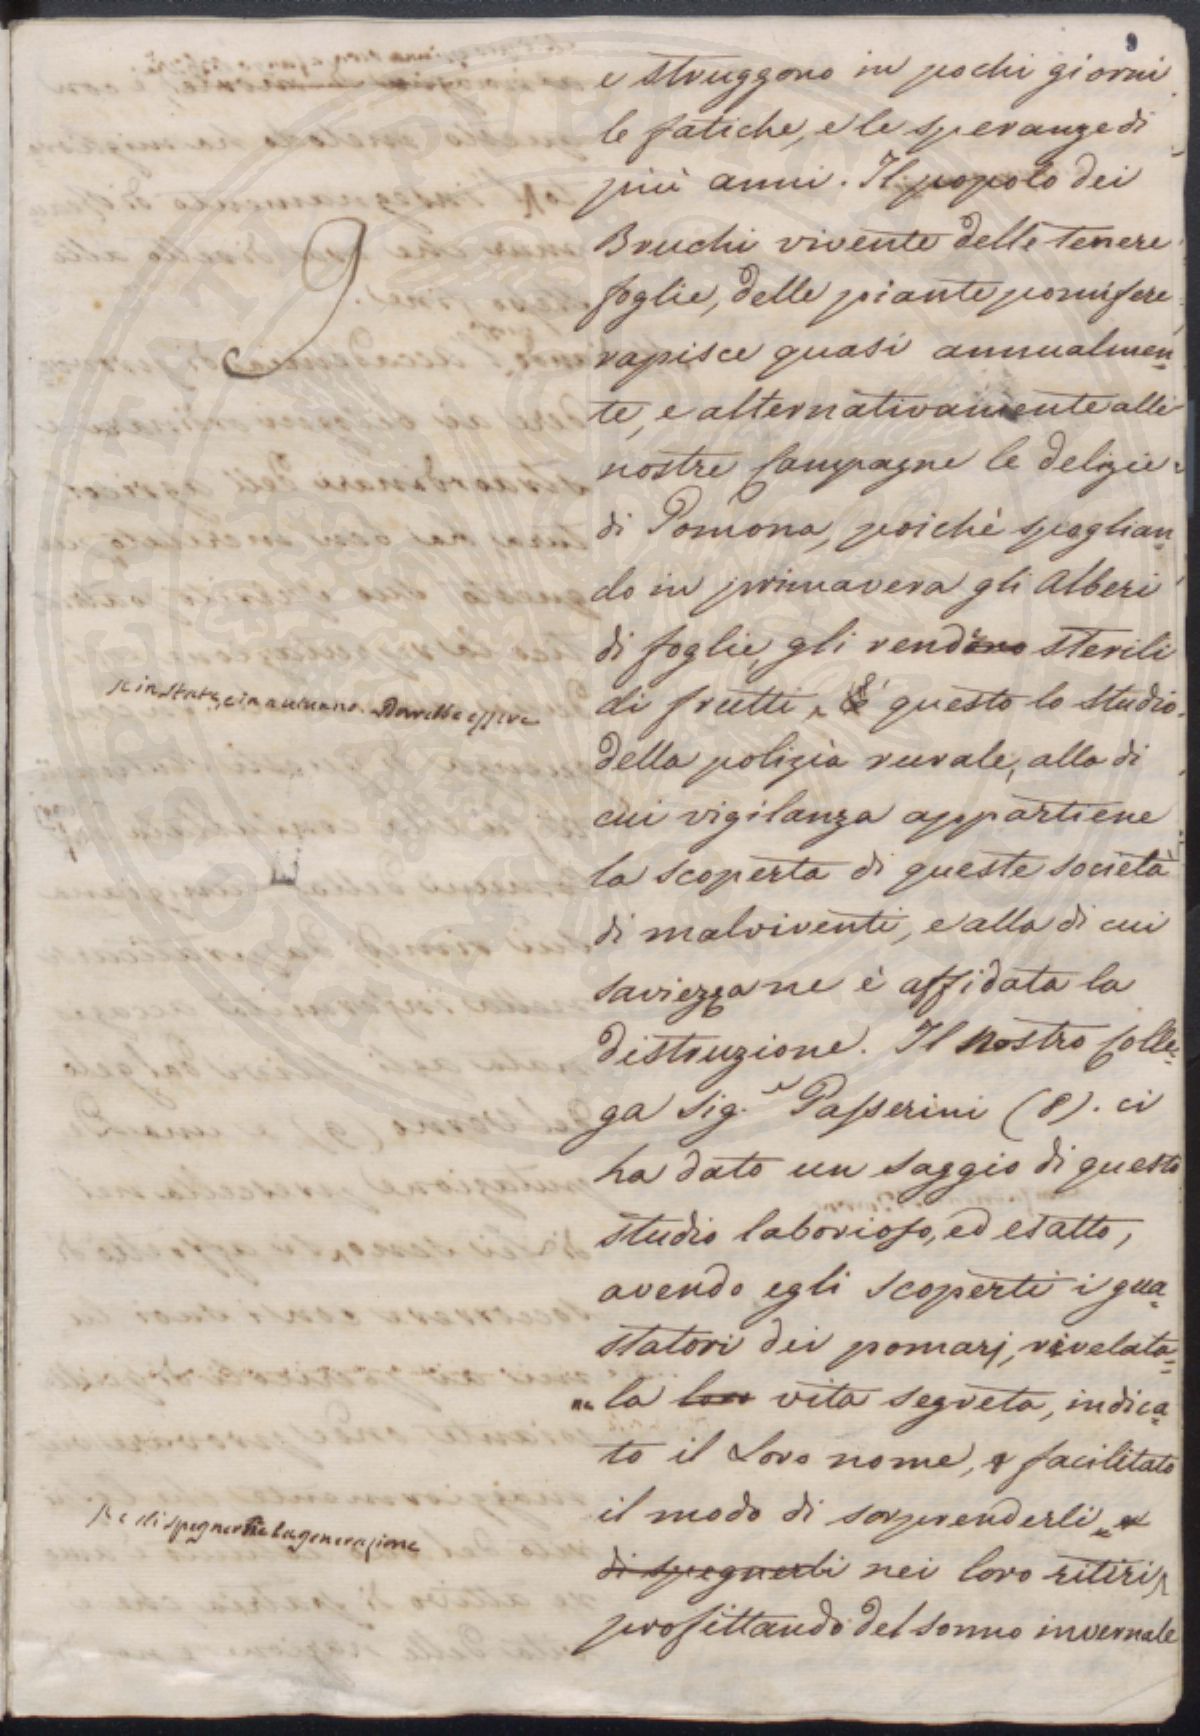 9
e struggono in pochi giorni
le fatiche, e le speranze di
più anni. Il popolo dei
Bruchi vivente delle tenere
foglie, delle piante pomifere
rapisce quasi annualmen=
te, e alternativamente alle
nostre Campagne le delizie
di Pomona, poichè spoglian=
do in primavera gli Alberi
di foglie, gli rendono sterili
di frutti è questo lo studio
della polizia rurale, alla di
cui vigilanza appartiene
la scoperta di queste società
di malviventi, e alla di cui
saviezza ne è affidata la
distruzione. Il nostro Colle=
ga Sig.r Passerini (8). ci
ha dato un saggio di questo
studio laborioso, ed esatto,
avendo egli scoperti i gua=
statori dei pomarj, rivelata=
ne la loro vita segreta, indica=
to il Loro nome, e facilitato
il modo di sorprenderli e
di spegnerli nei loro ritiri,
profittando del sonno invernale
9
e in State, e in autunno. Dovrebbe essere
e di spegnerne la generazione